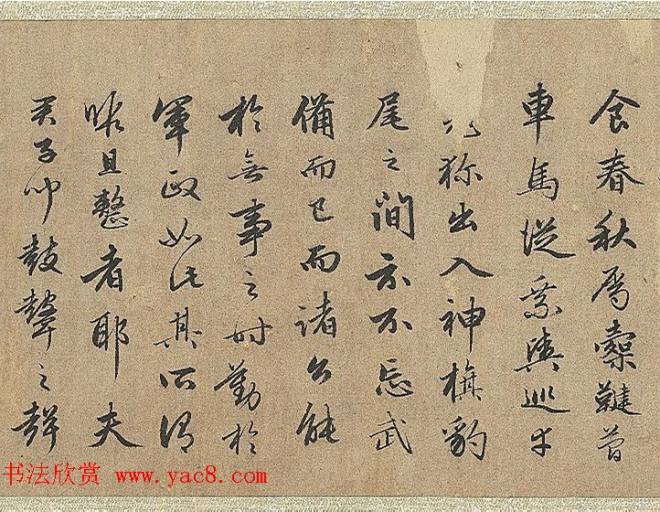 食春秋属櫜鞬
車馬從乘輿巡幸
称出入神旗豹
尾之間示不忘武
備而已而諸公能
於無事之時勤於
軍政如此其所謂
暇且整者耶夫
君子聞鼓鼙之聲
书法欣赏 www.yac8.com